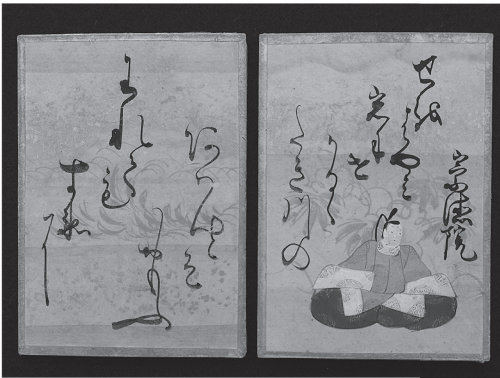 崇徳院
せを
はやみ
岩に
せ
かるゝ
たき川の
われても
すゑ
に
あはんとそ
おもふ